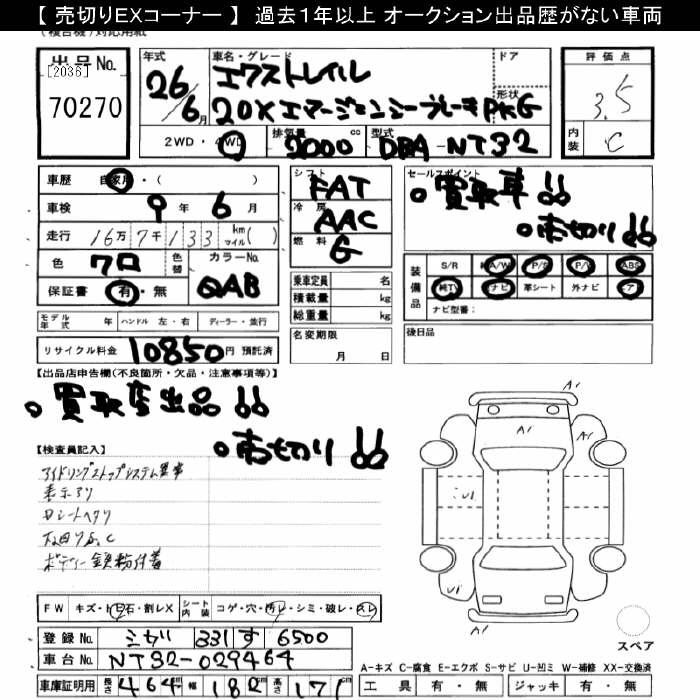 【 売切りEXコーナー 】 過去１年以上 オークション出品歴がない車両
出品 No.
[2036]
70270
年式
26/6月
車名・グレード
エクストレイル
20X エマージェンシーブレーキPKG
ドア
形状
評価点
3.5
内装
C
2WD・4WD
排気量
2000 cc
型式
DBA-NT32
車歴 自家用・( )
車検 9年 6月
走行 16万 7千 133 km マイル( )
色 クロ
色替
カラーNo.
GAB
保証書 有・無
シフト
FAT
冷房
AAC
燃料
G
セールスポイント
。買取車!!
。売切り!!
装備品
S/R 純A/W P/S P/W ABS
純TV ナビ 革シート 外ナビ エア
ナビ型番:
乗車定員 名
積載量 kg
総重量 kg
モデル年式 年 ハンドル 左・右 ディーラー・並行
リサイクル料金 10850円 預託済
名変期限
月 日
後日品
【出品店申告欄(不良箇所・欠品・注意事項等)】
。買取店出品!!
。売切り!!
【検査員記入】
アイドリングストップシステム異常
表示アリ
Dシートヘタリ
ボディー鉄粉付着
A1
A1
A1
A1
FW キズ・トビ石・割レX
シート内装 コゲ・穴・汚レ・シミ・破レ・スレ
登録No. 331 す 6500
車台No. NT32-029464
車庫証明用 長さ 464cm 幅 182cm 高さ 171cm
スペア
A-キズ C-腐食 E-エクボ S-サビ U-凹ミ W-補修 XX-交換済
工具 有・無 ジャッキ 有・無